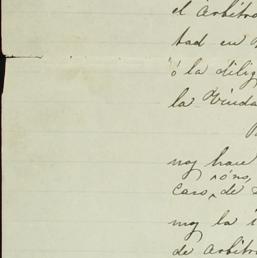 el árbitro
tad en
ó la dilig
la Viuda
nog hace
rons,
caso, de
mog la i
de arbitra